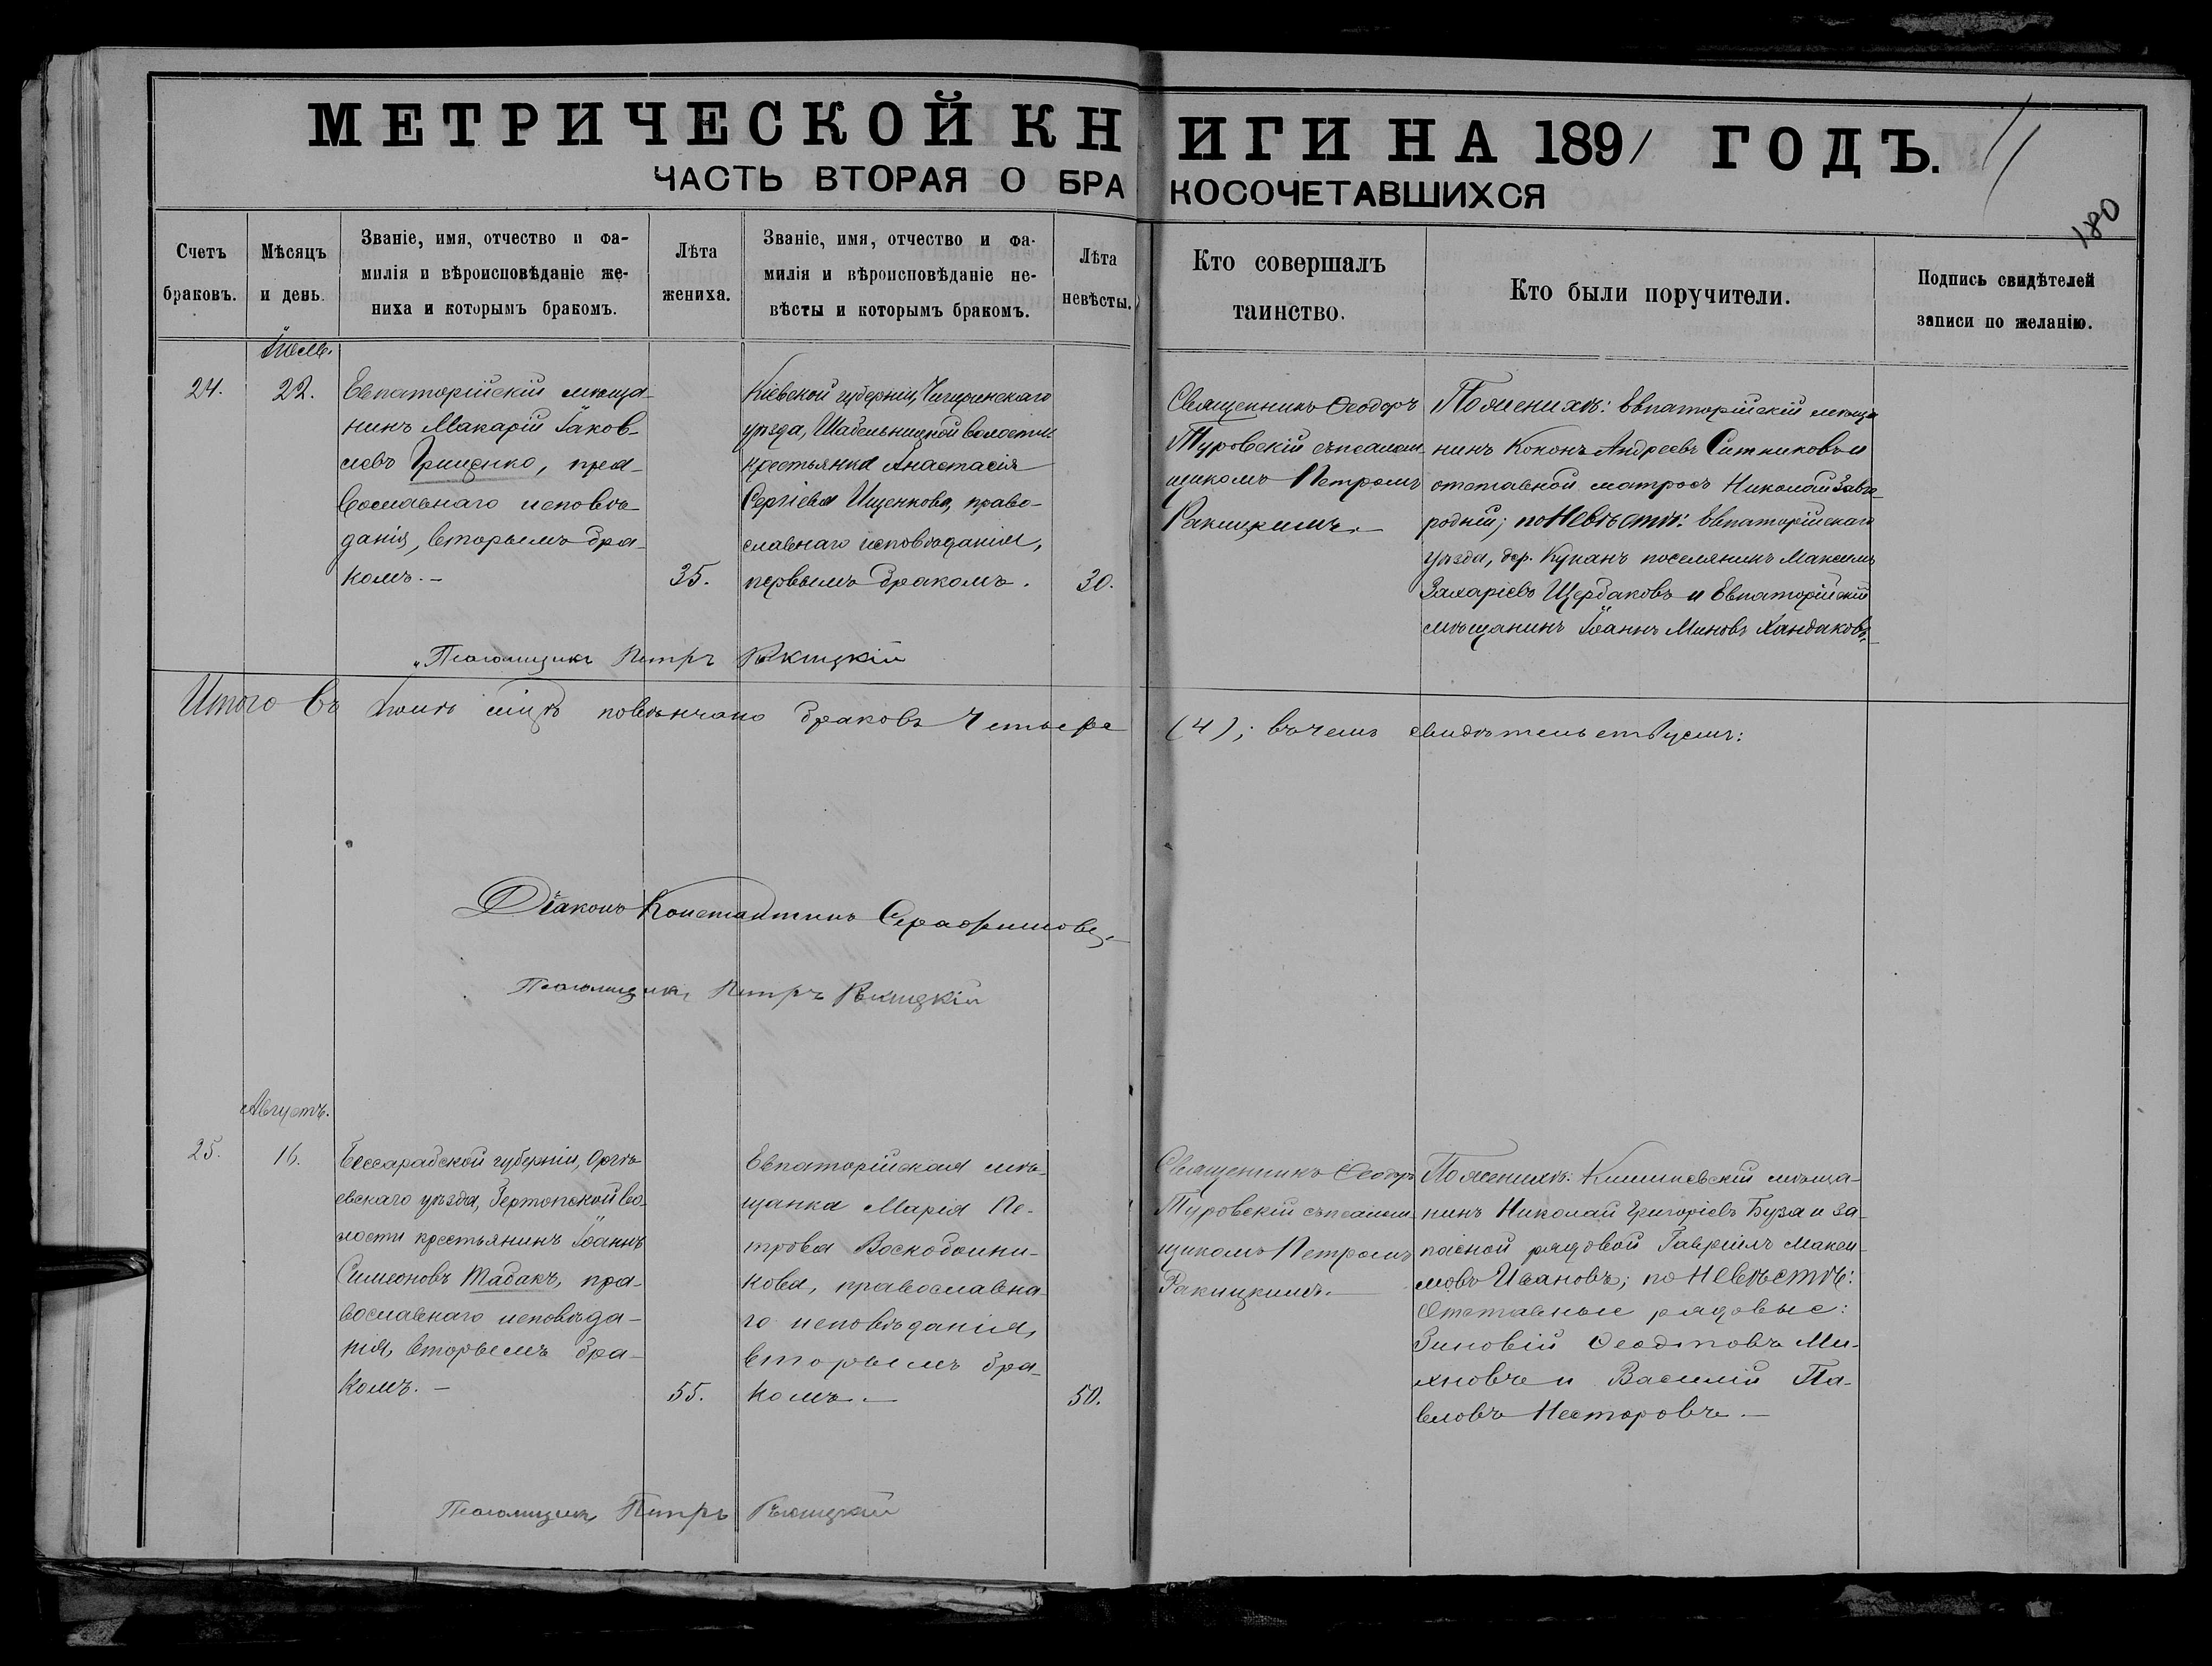 МЕТРИЧЕСКОЙ КНИГИ НА 1891 ГОДЪ.
ЧАСТЬ ВТОРАЯ О БРАКОСОЧЕТАВШИХСЯ
180
Счетъ
браковъ.
Мѣсяцъ
и день.
Званіе, имя, отчество и фа-
милія и вѣроисповѣданіе же-
ниха и которымъ бракомъ.
Лѣта
жениха.
Званіе, имя, отчество и фа-
милія и вѣроисповѣданіе не-
вѣсты и которымъ бракомъ.
Лѣта
невѣсты.
Кто совершалъ
таинство.
Кто были поручители.
Подпись свидѣтелей
записи по желанію.
Іюль.
24.
22.
Евпаторійскій мѣща-
нинъ Макарій Іаков-
левъ Грищенко, пра-
вославнаго исповѣ-
данія, вторымъ бра-
комъ. –
35.
Кіевской губерніи, Чигиринскаго
уѣзда, Шабельницкой волости
крестьянка Анастасія
Сергіева Ищенкова, право-
славнаго исповѣданія,
первымъ бракомъ.
30.
Священникъ Ѳеодоръ
Туровскій съ псалом-
щикомъ Петромъ
Ракицкимъ. –
По женихѣ: Евпаторійскій мѣща-
нинъ Конон Андреевъ Ситниковъ и
отставной матросъ Николай Заго-
родній; по невѣстѣ: Евпаторійскаго
уѣзда, дер. поселянинъ Максимъ
Захаріевъ Щербаковъ и Евпаторійскій
мѣщанинъ Іоаннъ Миновъ Хандаковъ.
Псаломщикъ Петръ Ракицкій
Итого въ Іюлѣ мцѣ повѣнчано браковъ Четыре (4); въ чемъ свидѣтельствуемъ:
Діаконъ Константинъ Серафимовъ.
Псаломщикъ Петръ Ракицкій
Августъ.
25.
16.
Бессарабской губерніи, Оргѣ-
евскаго уѣзда, во-
лости крестьянинъ Іоаннъ
Симеоновъ Табакъ, пра-
вославнаго исповѣда-
нія, вторымъ бра-
комъ. –
55.
Евпаторійская мѣ-
щанка Марія Пе-
трова Воскобойни-
кова, православна-
го исповѣданія,
вторымъ бра-
комъ. –
50.
Священникъ Ѳеодоръ
Туровскій съ псалом-
щикомъ Петромъ
Ракицкимъ. –
По женихѣ: Кишиневскій мѣща-
нинъ Николай Григоріевъ Буза и за-
пасной рядовой Гавріилъ Макси-
мовъ Ивановъ; по невѣстѣ:
Отставные рядовые:
Зиновій Ѳеодотовъ Ми-
хновъ и Василій Па-
вловъ Несторовъ. –
Псаломщикъ Петръ Ракицкій